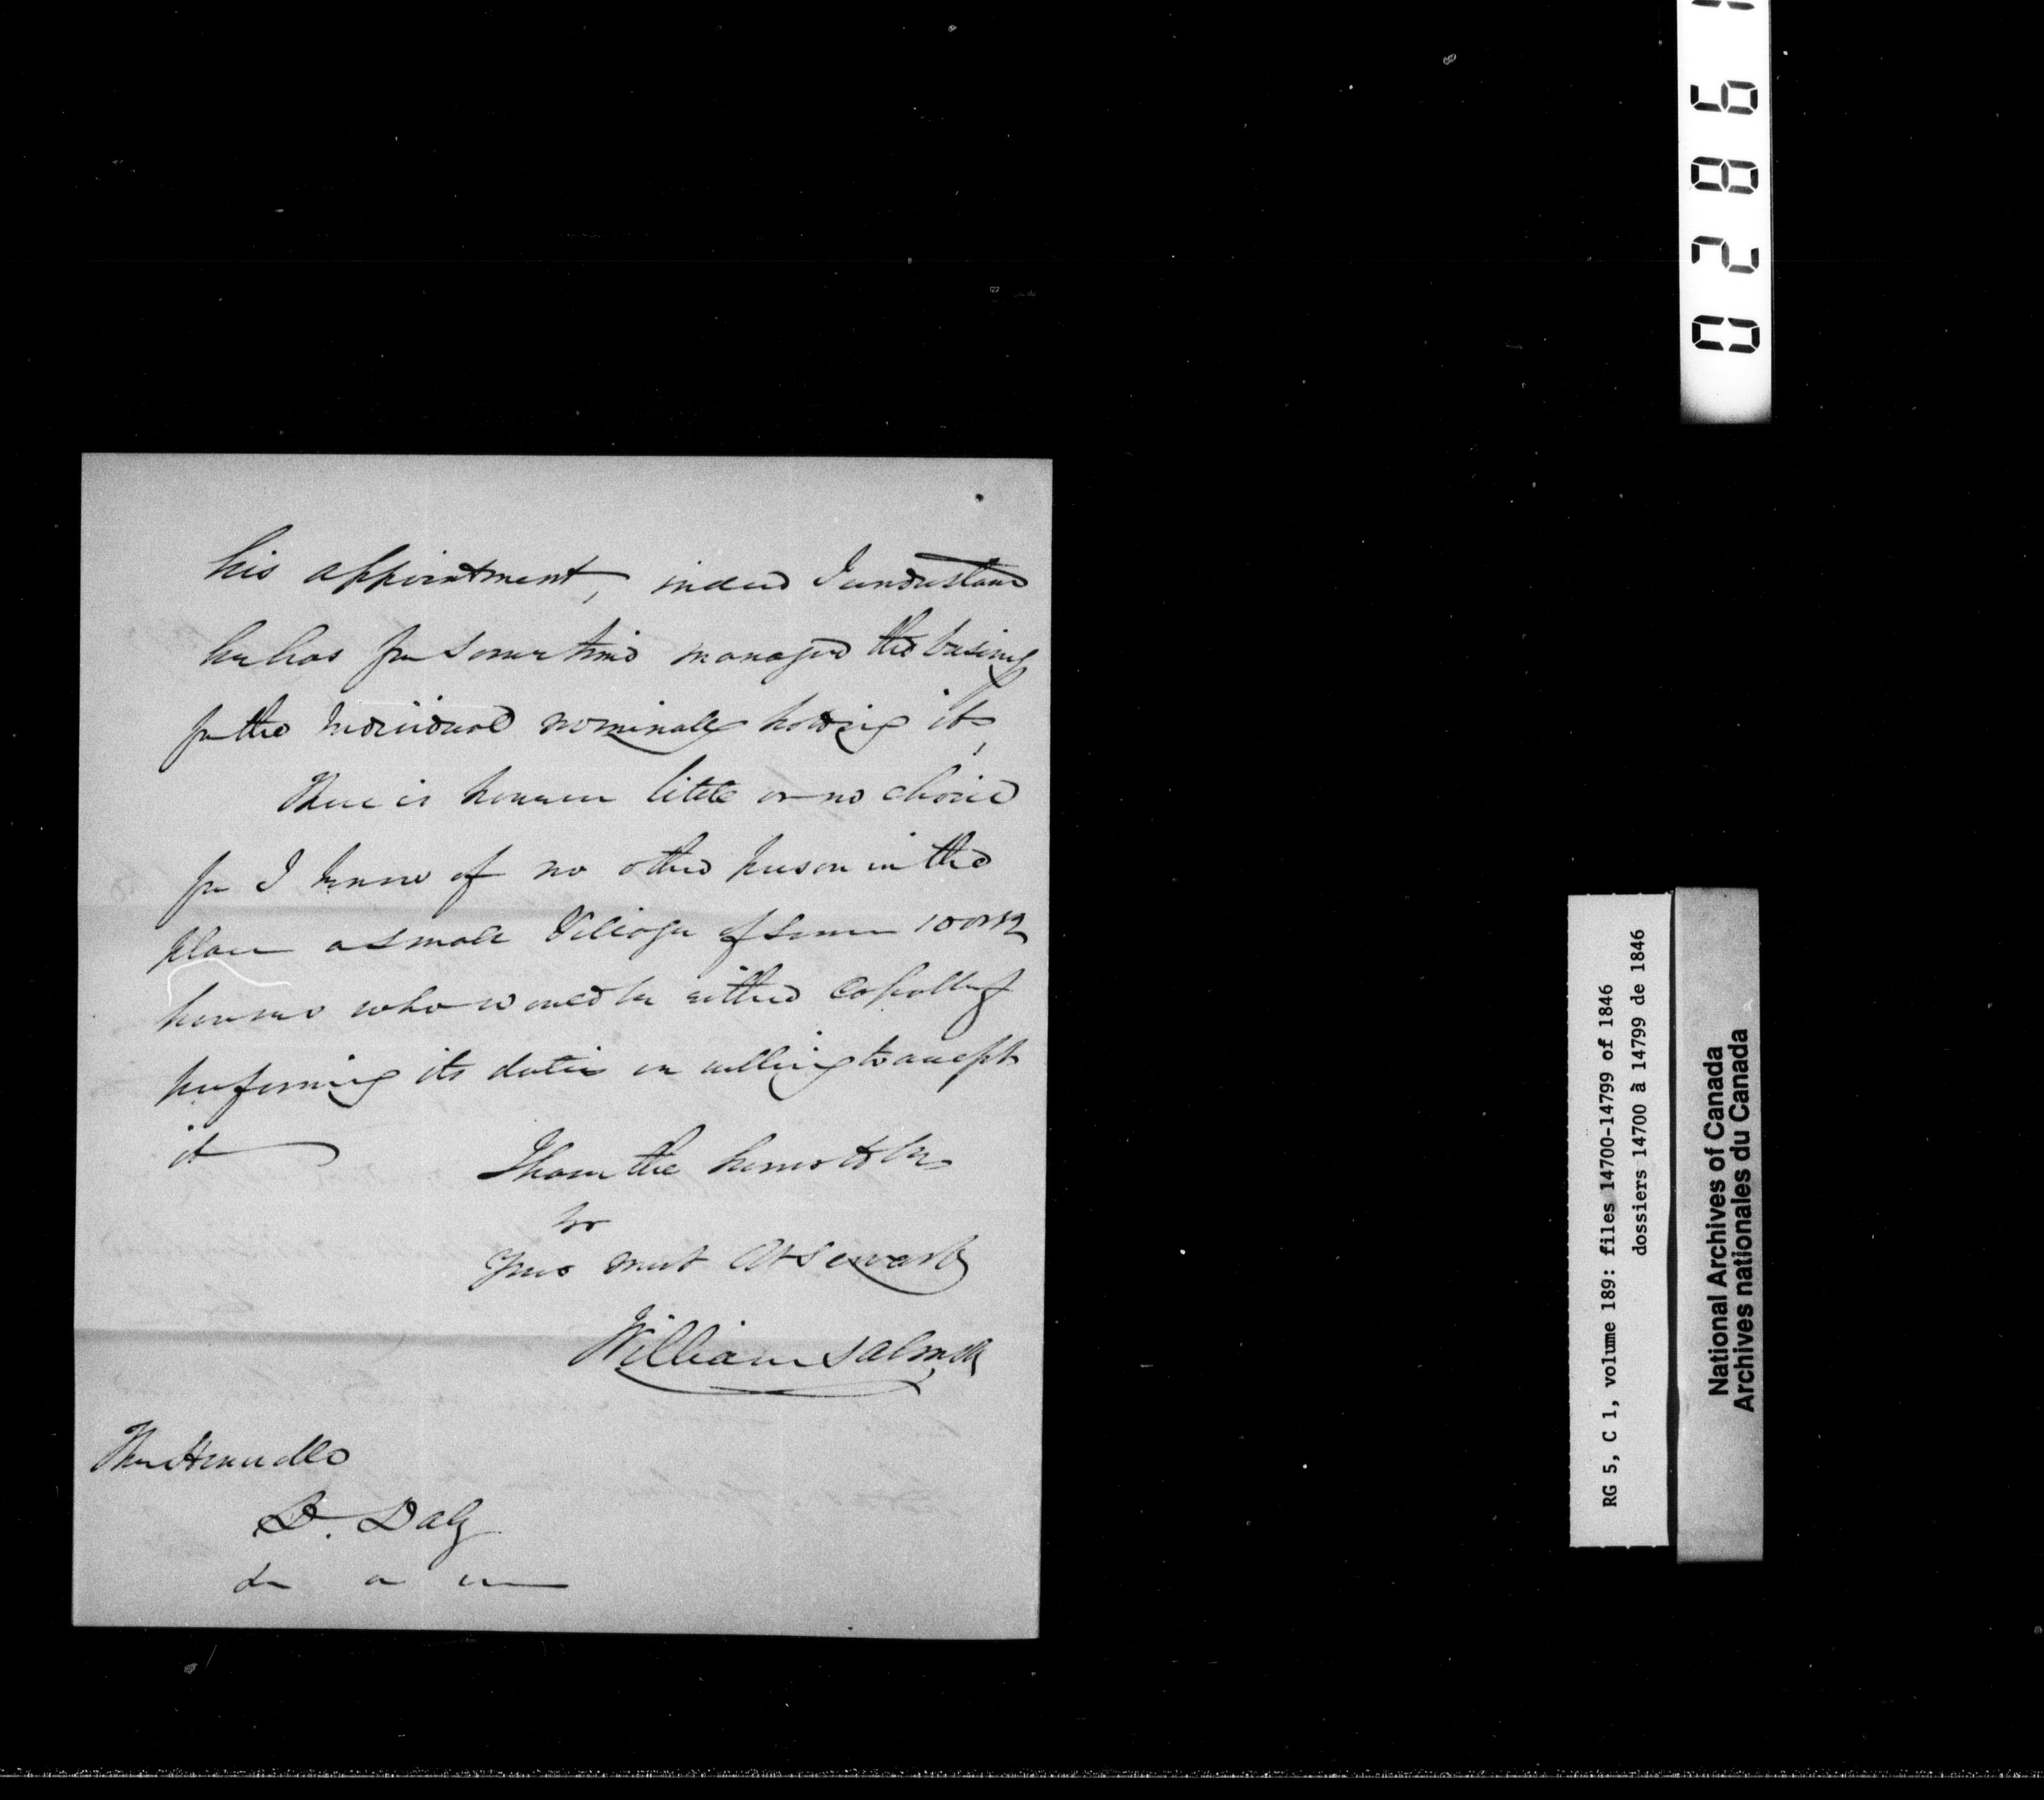 his appointment, indeed I understand
he has for some time managed the business
for the Individual nominally holding it,
There is however little or no choice
for I know of no other person in the
place a small Village of some 10 or 12
houses who would be either capable of
performing its duties or willing to accept
it
I have the honor to be
Sir
Your most Obt Servant
William Salmon
The Honorable
D. Daly
RG 5, C 1, volume 189: files 14700-14799 of 1846
dossiers 14700 à 14799 de 1846
National Archives of Canada
Archives nationales du Canada